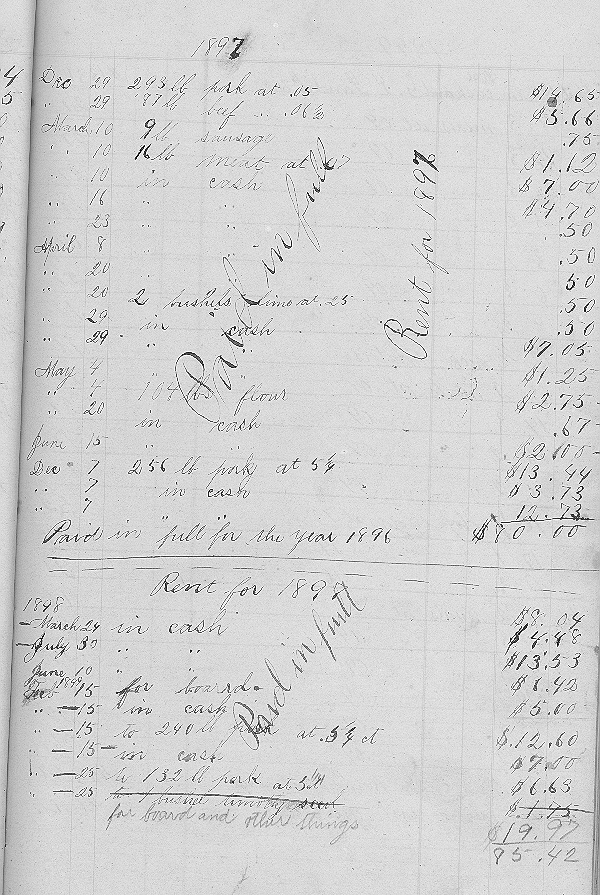 1897
Dec 29 293 lb pork at .05 $14.65
" 29 87 lb beef " .06½ $5.66
March 10 9 lb sausage .75
" 10 16 lb meat at .07 $1.12
10 in cash $7.00
" 16 " " $4.70
" 23 " " .50
April 8 " " .50
" 20 " 50
" 20 2 bushels at .25 .50
" 29 in cash .50
" 29 " " $7.05
May 4 $1.25
" 4 104 lbs flour $2.75
" 20 in cash .67
June 15 " " $2.00
Dec 7 256 lb pork at 5¼ $13.44
" 7 in cash $3.73
" 7 12.73
Paid in full
Rent for 1897
Paid in "full" for the year 1896 $80.00
Rent for 1898
1898
March 24 in cash $8.04
July 30 " " $4.48
June 10 " " $13.53
Feb 1899 15 for board $1.42
" 15 in cash $5.00
" 15 to 240 lb pork at .5¼ ct $12.60
" 15 in cash $7.00
" 25 to 132 lb pork at 5 $6.63
" 25 to 1 bushel timothy seed $1.75
for board and other things $19.97
Paid in full
95.42